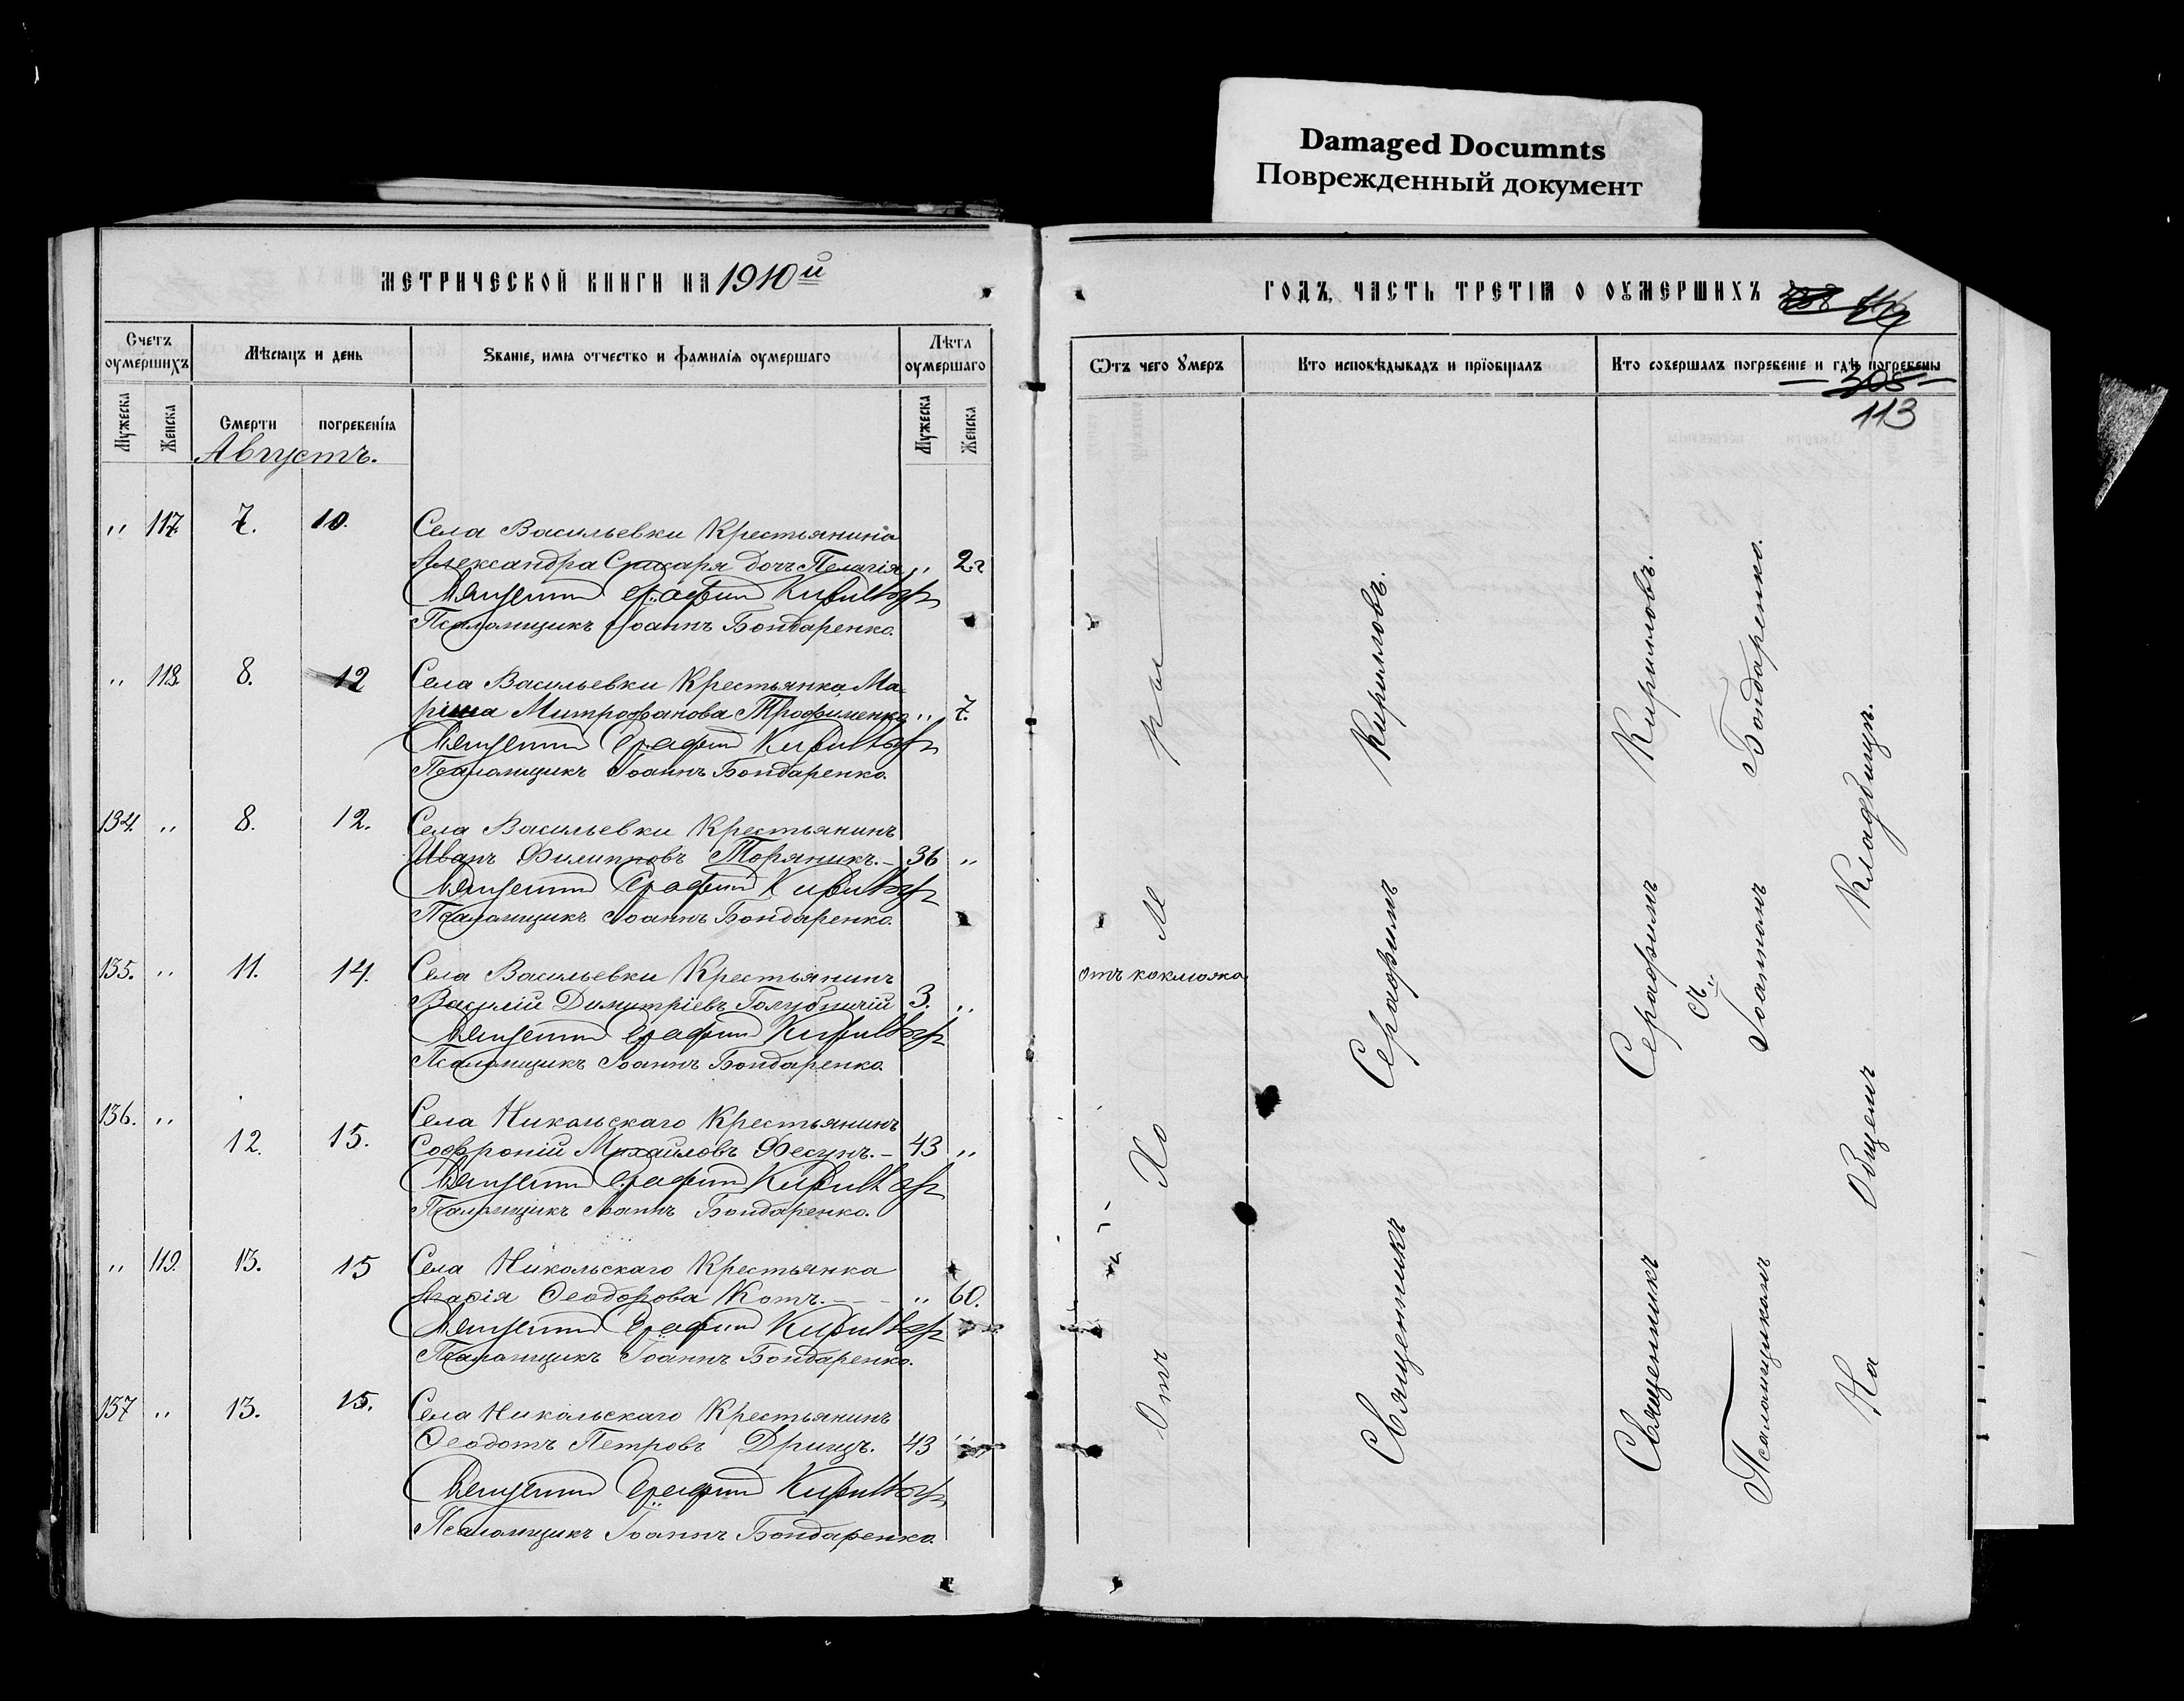 Damaged Documnts
Поврежденный документ
МЕТРИЧЕСКОЙ КНИГИ НА 1910й
Счетъ оумершихъ
Мѣсяцъ и день
Званіе, имя отчество и фамилія оумершаго
Лѣта оумершаго
Мужеска
Женска
Смерти
погребенія
Мужеска
Женска
Августъ.
" 117. 7. 10. Села Васильевки Крестьянина
Александра Сукаря дочь Пелагія " 2 г
Священникъ Серафимъ Кирилловъ
Псаломщикъ Іоаннъ Бондаренко.
" 118. 8. 12 Села Васильевки Крестьянка Ма-
рина Митрофанова Трофименко " 7.
Священникъ Серафимъ Кирилловъ
Псаломщикъ Іоаннъ Бондаренко.
134. " 8. 12. Села Васильевки Крестьянинъ
Иванъ Филипповъ Торяникъ.- 36 "
Священникъ Серафимъ Кирилловъ
Псаломщикъ Іоаннъ Бондаренко.
135. " 11. 14. Села Васильевки Крестьянинъ
Василій Димитріевъ Голубничій 3. "
Священникъ Серафимъ Кирилловъ
Псаломщикъ Іоаннъ Бондаренко.
136. " 12. 15. Села Никольскаго Крестьянинъ
Софроній Михайловъ Фесунъ.- 43 "
Священникъ Серафимъ Кирилловъ
Псаломщикъ Іоаннъ Бондаренко.
" 119. 13. 15 Села Никольскаго Крестьянка
Ѳеодорова Котъ. - - - " 60.
Священникъ Серафимъ Кирилловъ
Псаломщикъ Іоаннъ Бондаренко.
137 " 13. 15. Села Никольскаго Крестьянинъ
Ѳеодотъ Петровъ Дрищъ. 43 "
Священникъ Серафимъ Кирилловъ
Псаломщикъ Іоаннъ Бондаренко.
ГОДЪ, ЧАСТЬ ТРЕТІЯ О ОУМЕРШИХЪ
Ѿтъ чего Умеръ
Кто исповѣдывадъ и прїобщалъ
Кто совершалъ погребеніе и гдѣ погребены
305
113
Отъ Холеры
отъ коклюша
Священникъ Серафимъ Кирилловъ.
Священникъ Серафимъ Кирилловъ.
съ
Псаломщикомъ Іоанномъ Бондаренко.
На Общемъ Кладбищѣ.